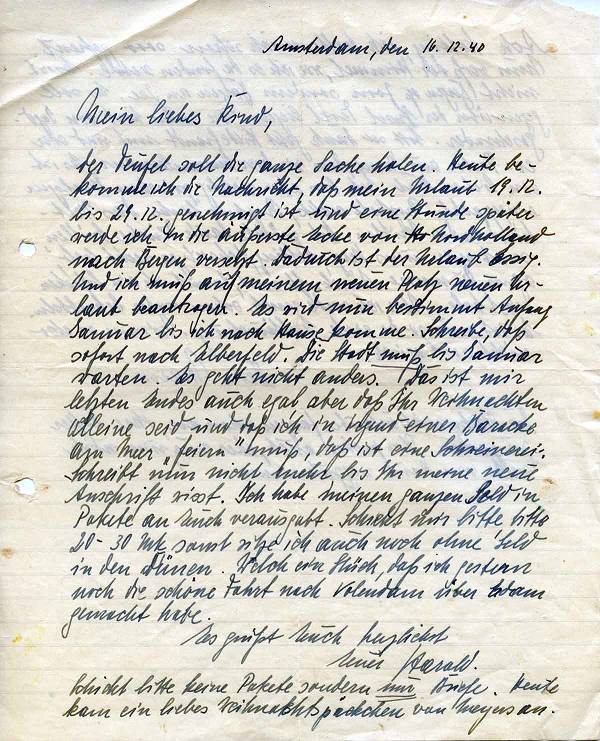 Amsterdam, den 16.12.40
Mein liebes Kind,
der Teufel soll die ganze Sache holen. Heute be-
komme ich die Nachricht, daß mein Urlaub 19.12.
bis 29.12. genehmigt ist und eine Stunde später
werde ich in die äußerste Ecke von Nordholland
nach Bergen versetzt. Dadurch ist der Urlaub essig.
Und ich muß auf meinem neuen Platz neuen Ur-
laub beantragen. Es wird nun bestimmt Anfang
Januar bis ich nach Hause komme. Schreibe, daß
sofort nach Elberfeld. Die Stadt muß bis Januar
warten. Es geht nicht anders. Das ist mir
letzten Endes auch egal aber daß Ihr Weihnachten
alleine seid und daß ich in irgend einer Baracke
am Meer "feiern" muß, daß ist eine Schweinerei.
Schreibt nun nicht mehr bis Ihr meine neue
Anschrift wisst. Ich habe meinen ganzen Sold in
Pakete an Euch verausgabt. Schickt mir bitte bitte
20-30 Mk sonst sitze ich auch noch ohne Geld
in den Dünen. Welch ein Glück, daß ich gestern
noch die schöne Fahrt nach Volendam über Edam
gemacht habe.
Es grüßt Euch herzlichst
Euer Harald.
Schickt bitte keine Pakete sondern nur Briefe. Heute
kam ein liebes Weihnachtspäckchen von Meyers an.